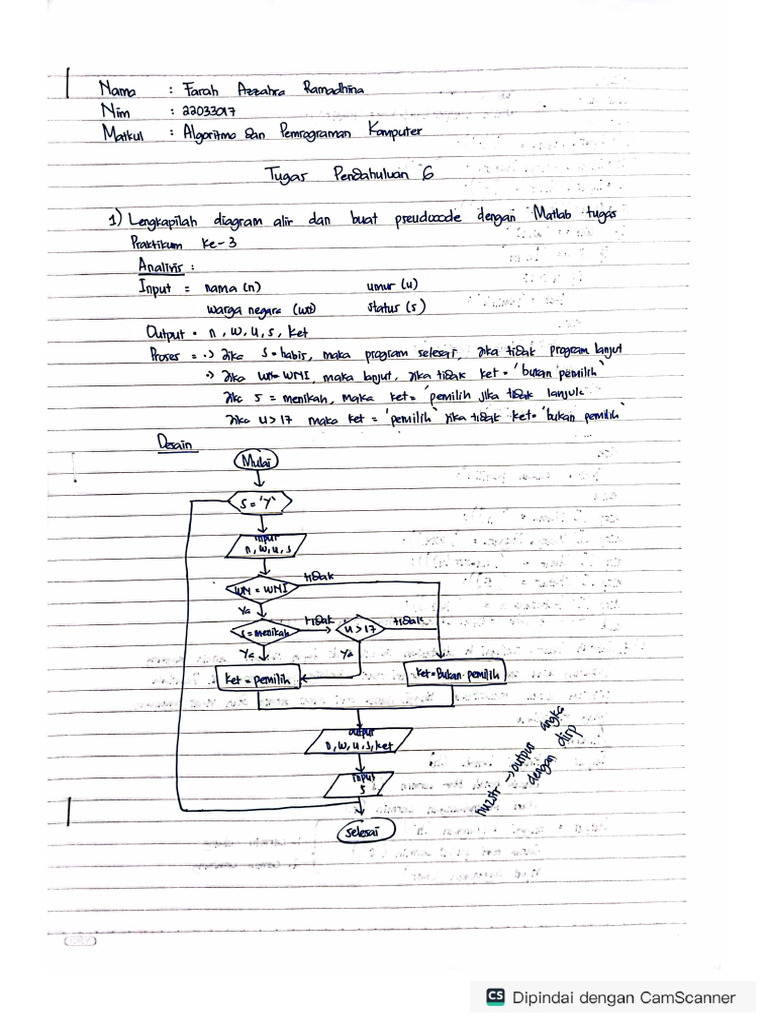 Nama : Farah Azzahra Ramadhina
Nim : 22033017
Matkul : Algoritma dan Pemrograman Komputer
Tugas Pendahuluan 6
1) Lengkapilah diagram alir dan buat pseudocode dengan Matlab tugas
Praktikum ke-3
Analisis :
Input = nama (n) umur (u)
warga negara (wn) status (s)
Output = n, w, u, s, ket
Proses = •> Jika s = habis, maka program selesai, Jika tidak program lanjut
•> Jika wn = WNI, maka lanjut, Jika tidak ket = 'bukan pemilih'
Jika s = menikah, maka ket = 'pemilih jika tidak lanjut
Jika u > 17 maka ket = 'pemilih' jika tidak ket = 'bukan pemilih'
Desain
Mulai
s = 'Y'
Input
n, w, u, s
WN = WNI
tidak
Ya
s = menikah
tidak
u > 17
tidak
Ya
Ya
ket = pemilih
ket = Bukan pemilih
output
n, w, u, s, ket
input
s
selesai
num2str → output angka
dengan disp
CS Dipindai dengan CamScanner